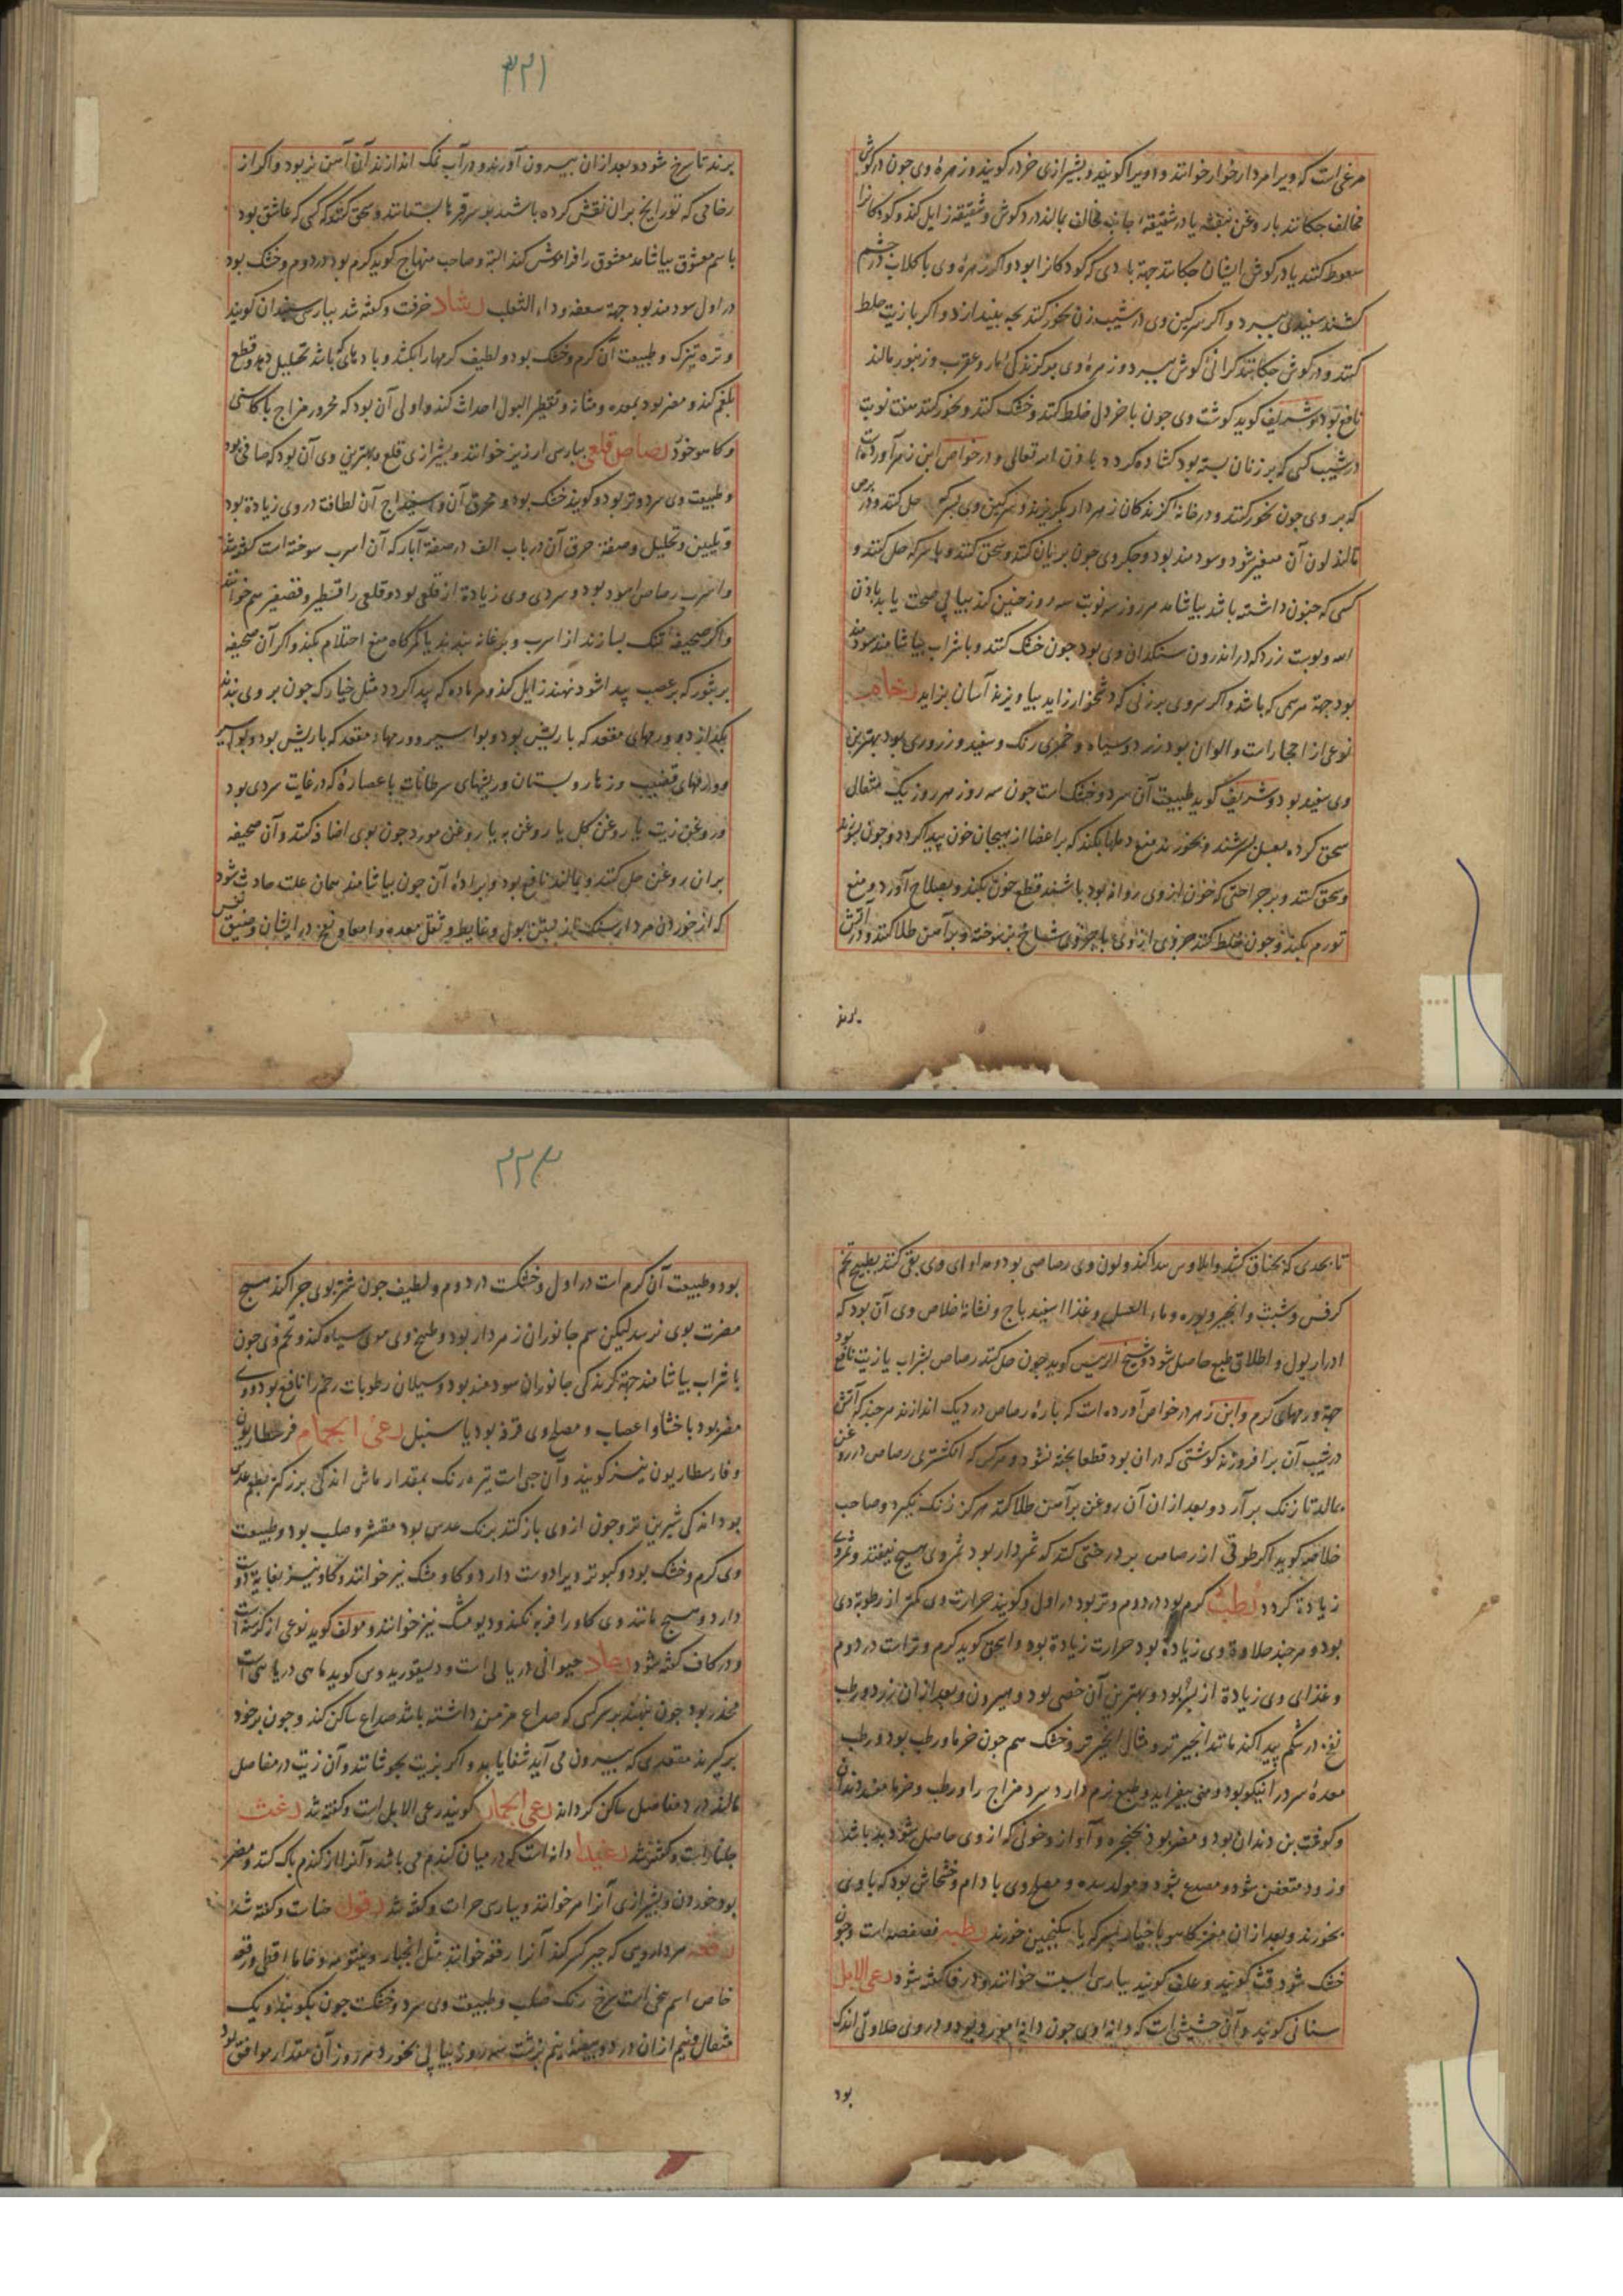 مرغی است که ویرا مردار خوار خوانند و اویرا کویند و بشیرازی خردر کویند و زهرهٔ وی چون در کوش
مخالف چکانند با روغن بنفشه یا در شقیقهٔ جانب مخالف بمالند درد کوش و شقیقه زایل کند و کودکانرا
سعوط کنند یا در کوش ایشان چکانند جهة بادی که کودکانرا بود و اکر زهرهٔ وی با کلاب در چشم
کشند سفیدی ببرد و اکر سرکین وی در شیب زن بخور کنند بچه بیندازد و اکر با زیت خلط
کنند و در کوش چکانند کرانی کوش ببرد و زهرهٔ وی بر کزندکی مار و عقرب و زنبور مالند
نافع بود و شریف کوید کوشت وی چون با خردل خلط کنند و خشک کنند و بخور کنند هفت نوبت
در شیب کسی که بر زنان بسته بود کشاده کردد باذن الله تعالی و در خواص ابن زهر آورده است
که پر وی چون بخور کنند در خانه کزندکان زهردار بکریزند و سرکین وی بسرکه حل کنند و در برص
مالند لون آن متغیر شود و سودمند بود و جکر وی چون بریان کنند و سحق کنند و با سرکه حل کنند و
کسی که جنون داشته باشد بیاشامد هر روز سه نوبت سه روز چنین کند پیاپی صحت یابد باذن
الله و پوست زرد که در اندرون سنکدان وی بود چون خشک کنند و با شراب بیاشامند سودمند
بود جهة هر سمی که باشد و اکر پر وی بر زنی که دشخوار زاید بیاویزند آسان بزاید رخام
نوعی از احجارات و الوان بود زرد و سیاه و خمری رنک و سفید و زرزوری بود بهترین
وی سفید بود و شریف کوید طبیعت آن سرد و خشک است چون سه روز هر روز یک مثقالی
سحق کرده بعسل بسرشند و بخورند منع دملها بکند که بر اعضا از هیجان خون پیدا کردد و چون بسوزند
و سحق کنند و بر جراحتی که خون از وی روانه بود باشند قطع خون بکند و بصلاح آورد و منع
تورم بکند و چون خلط کنند جزوی از وی با جزوی شاخ بز سوخته و بر آهن طلا کنند و در آتش
برند
۳۲۱
برند تا سرخ شود و بعد از آن بیرون آورند و در آب نمک اندازند آن آهن نر بود و اکر از
رخامی که تواریخ بران نقش کرده باشند بر سر قبرها بستانند و سحق کنند که کسی که عاشق بود
باسم معشوق بیاشامد معشوق را فراموش کند البته و صاحب منهاج کوید کرم بود در دوم و خشک بود
در اول سودمند بود جهة سعفه و داء الثعلب رشاد حرفت و کفته شد بپارسی سپندان کویند
و تره تیزک و طبیعت آن کرم و خشک بود و لطیف کرمها را بکشد و بادهای که باشد تحلیل دهد و قطع
بلغم کند و مضر بود بمعده و مثانه و تقطیر البول احداث کند و اولی آن بود که محرور مزاج با کاسنی
و کاهو خورد رصاص قلعی بپارسی ارزیز خوانند و بشیرازی قلع و بهترین وی آن بود که صافی بود
و طبیعت وی سرد و تر بود و کویند خشک بود و محرق آن و اسفیداج آن لطافت در وی زیاده بود
و تلیین و تحلیل و صفت حرق آن در باب الف در صفة آبار که آن اسرب سوخته است کفته شد
و اسرب رصاص اسود بود و سردی وی زیاده از قلعی بود و قلعی را قسطیر و قصقیر هم خوانند
و اکر صحیفه تنک بسازند از اسرب و بر عانه بندند یا کمرکاه منع احتلام بکند و اکر آن صحیفه
بر بثور که بر عصب پیدا شود نهند زایل کند و هر ماده که پیدا کردد مثل خیارک چون بر وی بندند
بکدازد و ورمهای مقعد که با ریش بود و بواسیر و ورمها و مقعد که با ریش بود و بواسیر
و ورمهای قضیب و زهار و پستان و ریشهای سرطانات با عصارهٔ که در غایت سردی بود
و روغن زیت یا روغن کل یا روغن به یا روغن مورد چون بوی اضافه کنند و آن صحیفه
بران روغن حل کنند و بمالند نافع بود و برادهٔ آن چون بیاشامند همان علت حادث شود
که از خوردن مردار سنک مانند بستن بول و غایط و ثقل معده و امعا و نفخ در ایشان و ضیق نفس
تا بحدی که بخناق کشد و ایلاوس پیدا کند و لون وی رصاصی بود و مداوای وی بقی کنند بطبیخ تخم
کرفس و شبت و انجیر و بوره و ماء العسل و غذا اسفیدباج و نشانهٔ خلاص وی آن بود که
ادرار بول و اطلاق طبع حاصل شود و شیخ الرئیس کوید چون حل کنند رصاص بشراب یا زیت نافع بود
جهة ورمهای کرم و ابن زهر در خواص آورده است که پارهٔ رصاص در دیک اندازند هر چند که آتش
در شیب آن برافروزند کوشتی که دران بود قطعا پخته نشود و هر کس که انکشتری رصاص در روغن
بمالد تا زنک برآرد و بعد از آن آن روغن بر آهن طلا کند هرکز زنک نکیرد و صاحب
خلاصه کوید اکر طوقی از رصاص بر درختی کنند که ثمردار بود ثمر وی هیچ نیفتد و ثمر وی
زیادة کردد رطب کرم بود در دوم و تر بود در اول و کویند حرارت وی کمتر از رطوبة وی
بود و هر چند حلاوة وی زیادة بود حرارت زیادة بود و اسحق کوید کرم و تر است در دوم
و غذای وی زیادة از بسر بود و بهترین آن خصی بود و هیرون و بعد از آن زرد و رطب
نفخ در شکم پیدا کند مانند انجیر تر و مثال انجیر تر و خشک هم چون خرما و رطب بود و رطب
معدهٔ سرد را نیکو بود و منی بیفزاید و طبع نرم دارد سرد مزاج را و رطب و خرما مفسد دندان
و کوشت بن دندان بود و مضر بود بحنجره و آواز و خونی که از وی حاصل شود بد باشد
و زود متعفن شود و مصدع بود و مولد سده و مصلح وی بادام و خشخاش بود که با وی
بخورند و بعد از آن مغز کاهو با خیار بسرکه یا سکنجبین خورند رطبه فصفصه است و چون
خشک شود قت کویند و علف کویند بپارسی اسپست خوانند و در فا کفته شود رعی الابل
سنانی کویند و آن حشیشی است که دانهٔ وی چون دانهٔ مورد بود و در وی حلاوتی اندک
بود
۳۲۲
بود و طبیعت آن کرم است در اول و خشکست در دوم و لطیف چون شتر بوی چرا کند هیچ
مضرت بوی نرسد لیکن سم جانوران زهردار بود و طبیخ وی موی سیاه کند و تخم وی چون
با شراب بیاشامند جهة کزندکی جانوران سودمند بود و سیلان رطوبات رحم را نافع بود و وی
مضر بود باحشا و اعصاب و مصلح وی قرفه بود یا سنبل رعی الحمام فرسطاریون
و فارسطاریون نیز کویند و آن حبی است تیره رنک بمقدار ماش اندکی بزرکتر بطعم عدس
بود اندکی شیرین تر و چون از وی باز کنند برنک عدس بود مقشر و صلب بود و طبیعت
وی کرم و خشک بود و کبوتر ویرا دوست دارد و کاو مشک نیز خوانند و کاو نیز بغایة دوست
دارد و هیچ مانند وی کاو را فربه نکند و دیو مشک نیز خوانند و مولف کوید نوعی از کرسنه است
و در کاف کفته شود رعاد حیوانی دریائی است و دیسقوریدوس کوید ماهی دریائی است
مخدر بود چون بنهند بر سر کسی که صداع مزمن داشته باشد صداع ساکن کند و چون بر خود
برکیرند مقعدی که بیرون می آید شفا یابد و اکر بزیت بجوشانند و آن زیت در مفاصل
مالند درد مفاصل ساکن کرداند رعی الحمار کویند رعی الابل است و کفته شد رعث
جلنارست و کفته شد رعیدا دانه است که در میان کندم می باشد و آنرا از کندم پاک کنند و مضر
بود خوردن و بشیرازی آنرا مر خوانند و بپارسی حرات و کفته شد رقون حناست و کفته شد
رقعه هر دارویی که جبر کسر کند آنرا رقعه خوانند مثل انجبار و بیقومه و فاما اقطی و رقعه
خاص اسم بیخی است سرخ رنک صلب و طبیعت وی سرد و خشکست چون بکوبند و یک
مثقال و نیم از آن در دو بیضهٔ نیم برشت سه روز پیاپی بخورد هر روز آن مقدار موافق بود